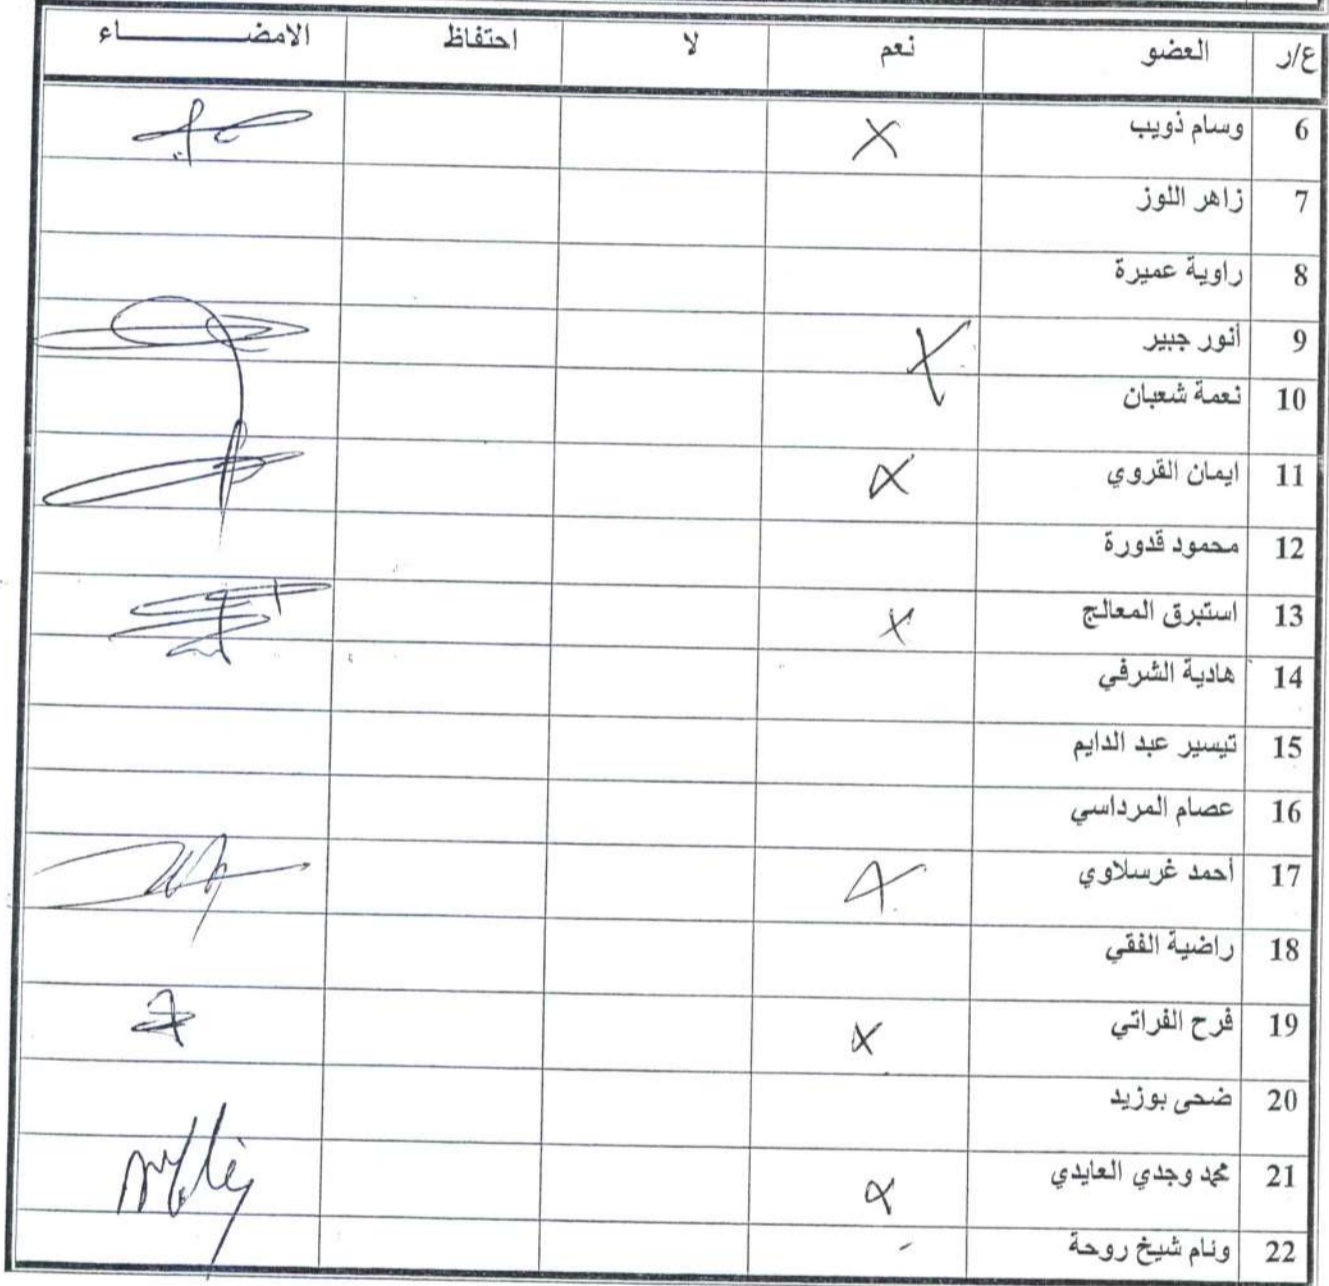 ع/ر العضو نعم لا احتفاظ الامضــــــــاء
6 وسام ذويب X
7 زاهر اللوز
8 راوية عميرة
9 أنور جبير X
10 نعمة شعبان
11 ايمان القروي X
12 محمود قدورة
13 استبرق المعالج X
14 هادية الشرفي
15 تيسير عبد الدايم
16 عصام المرداسي
17 أحمد غرسلاوي X
18 راضية الفقي
19 فرح الفراتي X
20 ضحى بوزيد
21 محمد وجدي العايدي X
22 ونام شيخ روحة